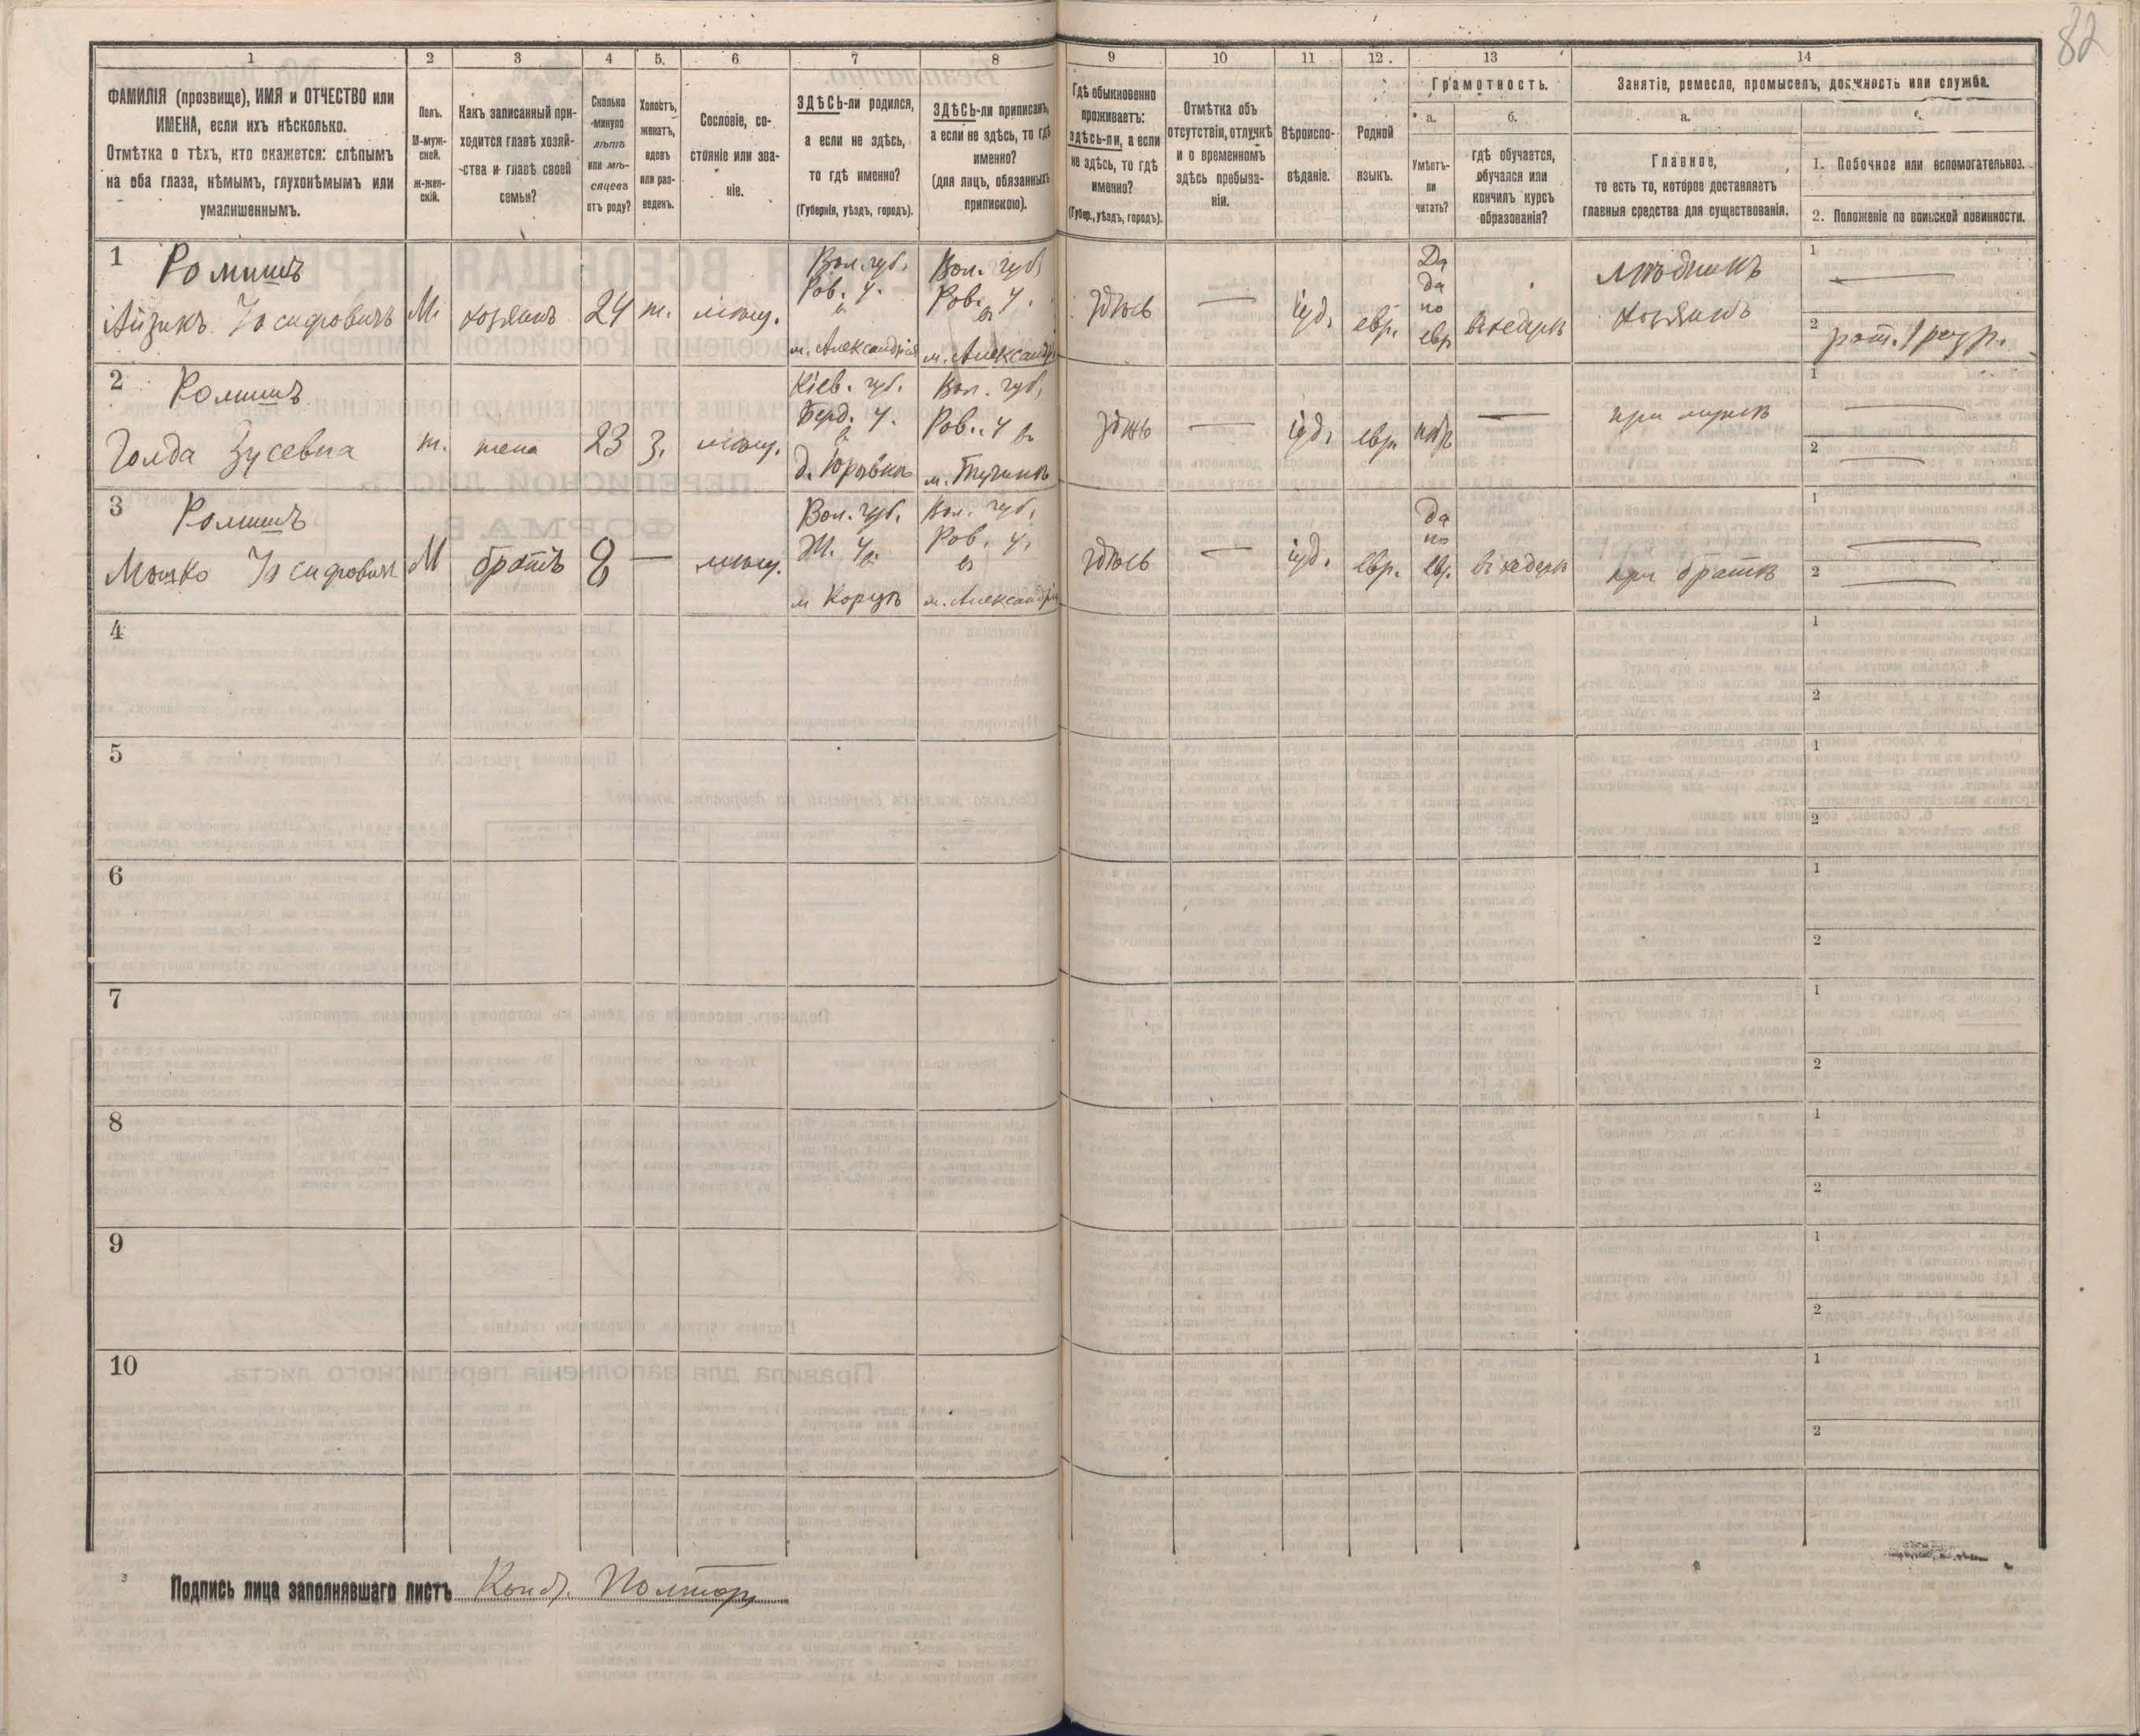 82
1
2
3
4
5.
6
7
8
9
10
11
12.
13
14
ФАМИЛІЯ (прозвище), ИМЯ и ОТЧЕСТВО или
ИМЕНА, если ихъ нѣсколько.
Отмѣтка о тѣхъ, кто окажется: слѣпымъ
на оба глаза, нѣмымъ, глухонѣмымъ или
умалишеннымъ.
Полъ.
М-муж-
ской.
ж-жен-
скій.
Какъ записанный при-
ходится главѣ хозяй-
ства и главѣ своей
семьи?
Сколько
минуло
лѣтъ
или мѣ-
сяцевъ
отъ роду?
Холостъ,
женатъ,
вдовъ
или раз-
веденъ.
Сословіе, со-
стояніе или зва-
ніе.
ЗДѢСЬ-ли родился,
а если не здѣсь,
то гдѣ именно?
(Губернія, уѣздъ, городъ).
ЗДѢСЬ-ли приписанъ,
а если не здѣсь, то гдѣ
именно?
(для лицъ, обязанныхъ
припискою).
Гдѣ обыкновенно
проживаетъ:
здѣсь-ли, а если
не здѣсь, то гдѣ
именно?
(Губер., уѣздъ, городъ).
Отмѣтка объ
отсутствіи, отлучкѣ
и о временномъ
здѣсь пребыва-
ніи.
Вѣроиспо-
вѣданіе.
Родной
языкъ.
Грамотность.
а.
Умѣетъ-
ли
читать?
б.
гдѣ обучается,
обучался или
кончилъ курсъ
образованія?
Занятіе, ремесло, промыселъ, должность или служба.
а.
Главное,
то есть то, которое доставляетъ
главныя средства для существованія.
1. Побочное или вспомогательноз.
2. Положеніе по воинской повинности.
1
Ромишъ
Айзикъ Іосифовичъ
М.
хозяинъ
24
ж.
мѣщ.
Вол. губ.
Ров. у.
в
м. Александрія
Вол. губ,
Ров. у.
в
м. Александрі
здѣсь
іуд.
евр.
Да
да
по
евр
въ хедерѣ
Мѣдникъ
хозяинъ
1
2
рат. 1 разр.
2
Ромишъ
Голда Зусевна
ж.
жена
23
З.
мѣщ.
Кіев. губ.
Берд. у.
в
Вол. губ,
Ров. у в
м. Тучинъ
здѣсь
іуд.
евр.
при мужѣ
1
2
3
Ромишъ
Мошко Іосифович
М
братъ
8
мѣщ.
Вол. губ.
м Корцъ
Вол. губ,
Ров. у.
в
м. Александрія
здѣсь
іуд.
евр.
да
по
евр.
въ хедерѣ
при братѣ
1
2
4
1
2
5
1
2
6
1
2
7
1
2
8
1
2
9
1
2
10
1
2
Подпись лица заполнявшаго листъ